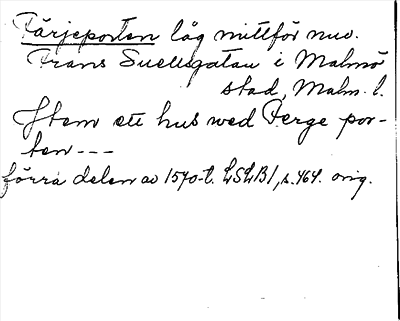 Färjeporten låg mittför nuv.
Frans Suellsgatan i Malmö
stad, Malm. l.
Item ett hus wed Ferge por-
ten ---
förra delen av 1570-t. LSLB1, s. 464. orig.